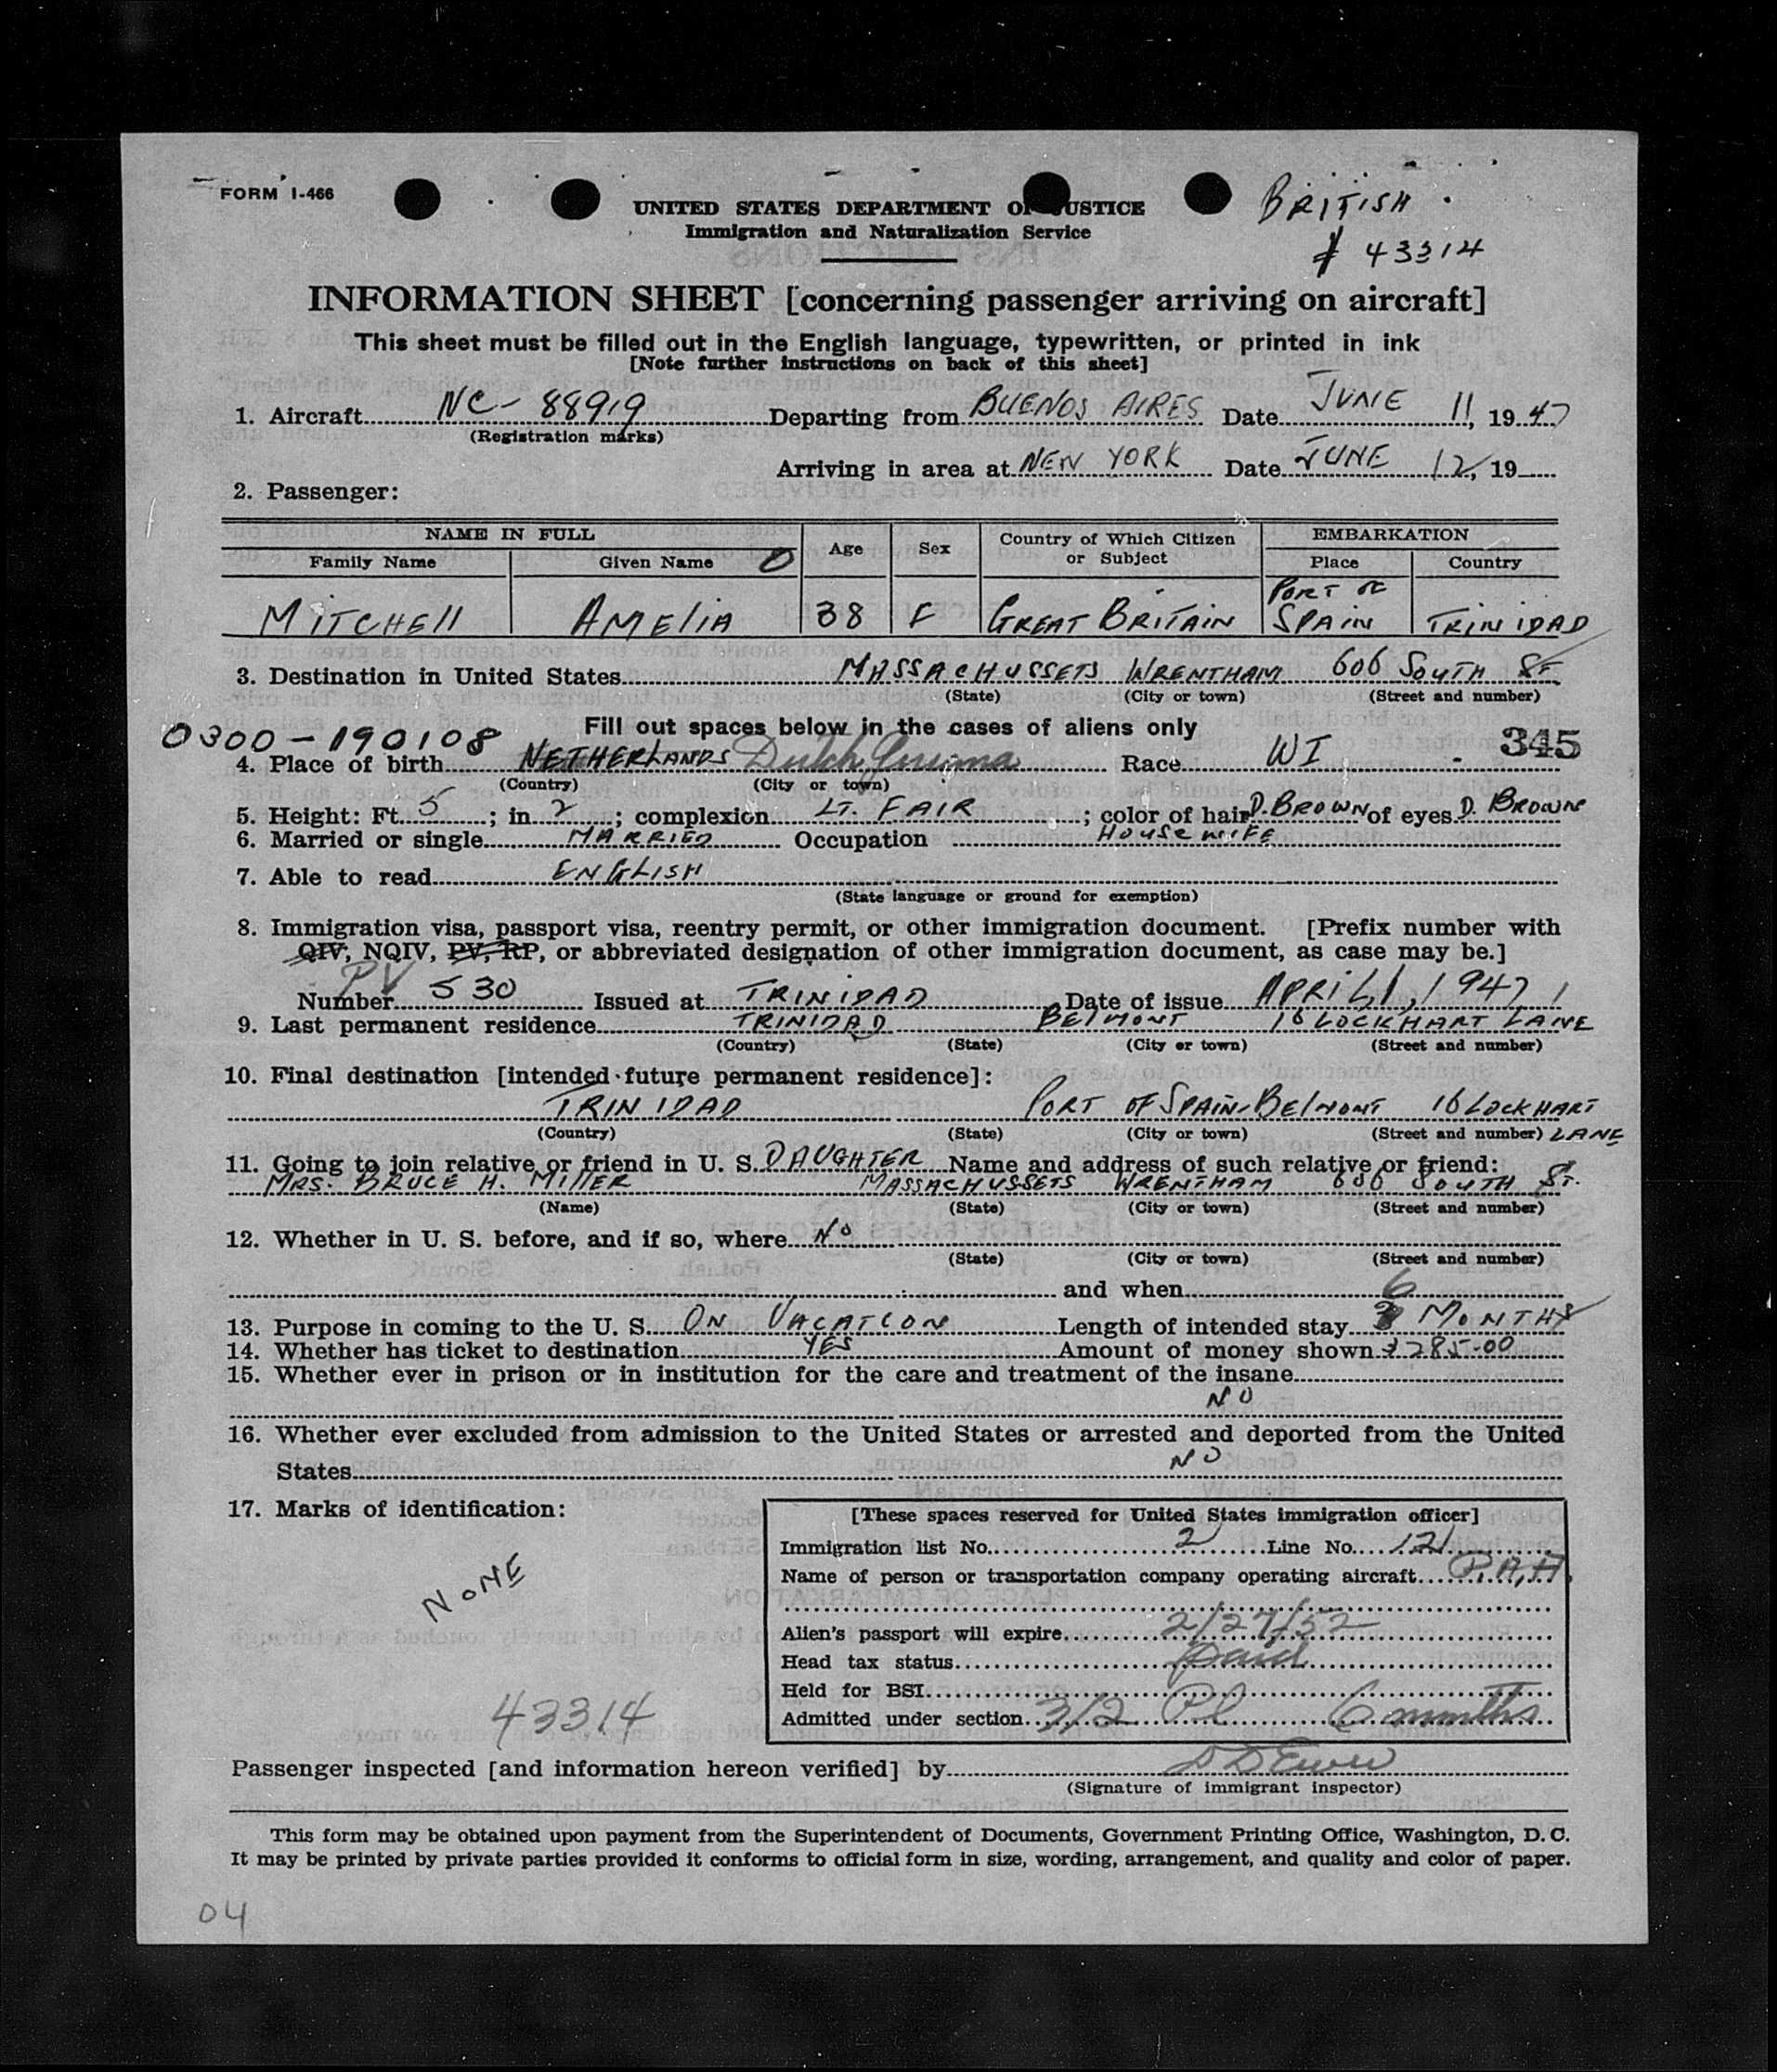 FORM I-466
BRITISH
# 43314
UNITED STATES DEPARTMENT OF JUSTICE
Immigration and Naturalization Service
INFORMATION SHEET [concerning passenger arriving on aircraft]
This sheet must be filled out in the English language, typewritten, or printed in ink
[Note further instructions on back of this sheet]
1. Aircraft NC-88919 Departing from BUENOS AIRES Date JUNE 11, 1947
(Registration marks)
Arriving in area at NEW YORK Date JUNE 12, 19
2. Passenger:
NAME IN FULL Age Sex Country of Which Citizen or Subject EMBARKATION
Family Name Given Name O Place Country
MITCHELL AMELIA 38 F GREAT BRITAIN PORT OF SPAIN TRINIDAD
3. Destination in United States MASSACHUSSETS WRENTHAM 606 SOUTH ST
(State) (City or town) (Street and number)
Fill out spaces below in the cases of aliens only
0300-190108 345
4. Place of birth NETHERLANDS Dutch Guiana Race WI
(Country) (City or town)
5. Height: Ft. 5; in 2; complexion LT. FAIR; color of hair D. BROWN of eyes D. BROWN
6. Married or single MARRIED Occupation HOUSEWIFE
7. Able to read ENGLISH
(State language or ground for exemption)
8. Immigration visa, passport visa, reentry permit, or other immigration document. [Prefix number with
QIV, NQIV, PV, RP, or abbreviated designation of other immigration document, as case may be.]
PV
Number 530 Issued at TRINIDAD Date of issue APRIL 1, 1947
9. Last permanent residence TRINIDAD BELMONT 16 LOCKHART LANE
(Country) (State) (City or town) (Street and number)
10. Final destination [intended future permanent residence]:
TRINIDAD PORT OF SPAIN-BELMONT 16 LOCKHART
(Country) (State) (City or town) (Street and number) LANE
11. Going to join relative or friend in U. S. DAUGHTER Name and address of such relative or friend:
MRS. BRUCE H. MILLER MASSACHUSSETS WRENTHAM 606 SOUTH ST.
(Name) (State) (City or town) (Street and number)
12. Whether in U. S. before, and if so, where NO
(State) (City or town) (Street and number)
and when
6
13. Purpose in coming to the U. S. ON VACATION Length of intended stay 3 MONTHS
14. Whether has ticket to destination YES Amount of money shown $285.00
15. Whether ever in prison or in institution for the care and treatment of the insane
NO
16. Whether ever excluded from admission to the United States or arrested and deported from the United
States NO
17. Marks of identification:
NONE
43314
[These spaces reserved for United States immigration officer]
Immigration list No. 2 Line No. 121
Name of person or transportation company operating aircraft P.A.A.
Alien's passport will expire 2/27/52
Head tax status paid
Held for BSI
Admitted under section 3/2 Pl 6 months
Passenger inspected [and information hereon verified] by
(Signature of immigrant inspector)
This form may be obtained upon payment from the Superintendent of Documents, Government Printing Office, Washington, D. C.
It may be printed by private parties provided it conforms to official form in size, wording, arrangement, and quality and color of paper.
04